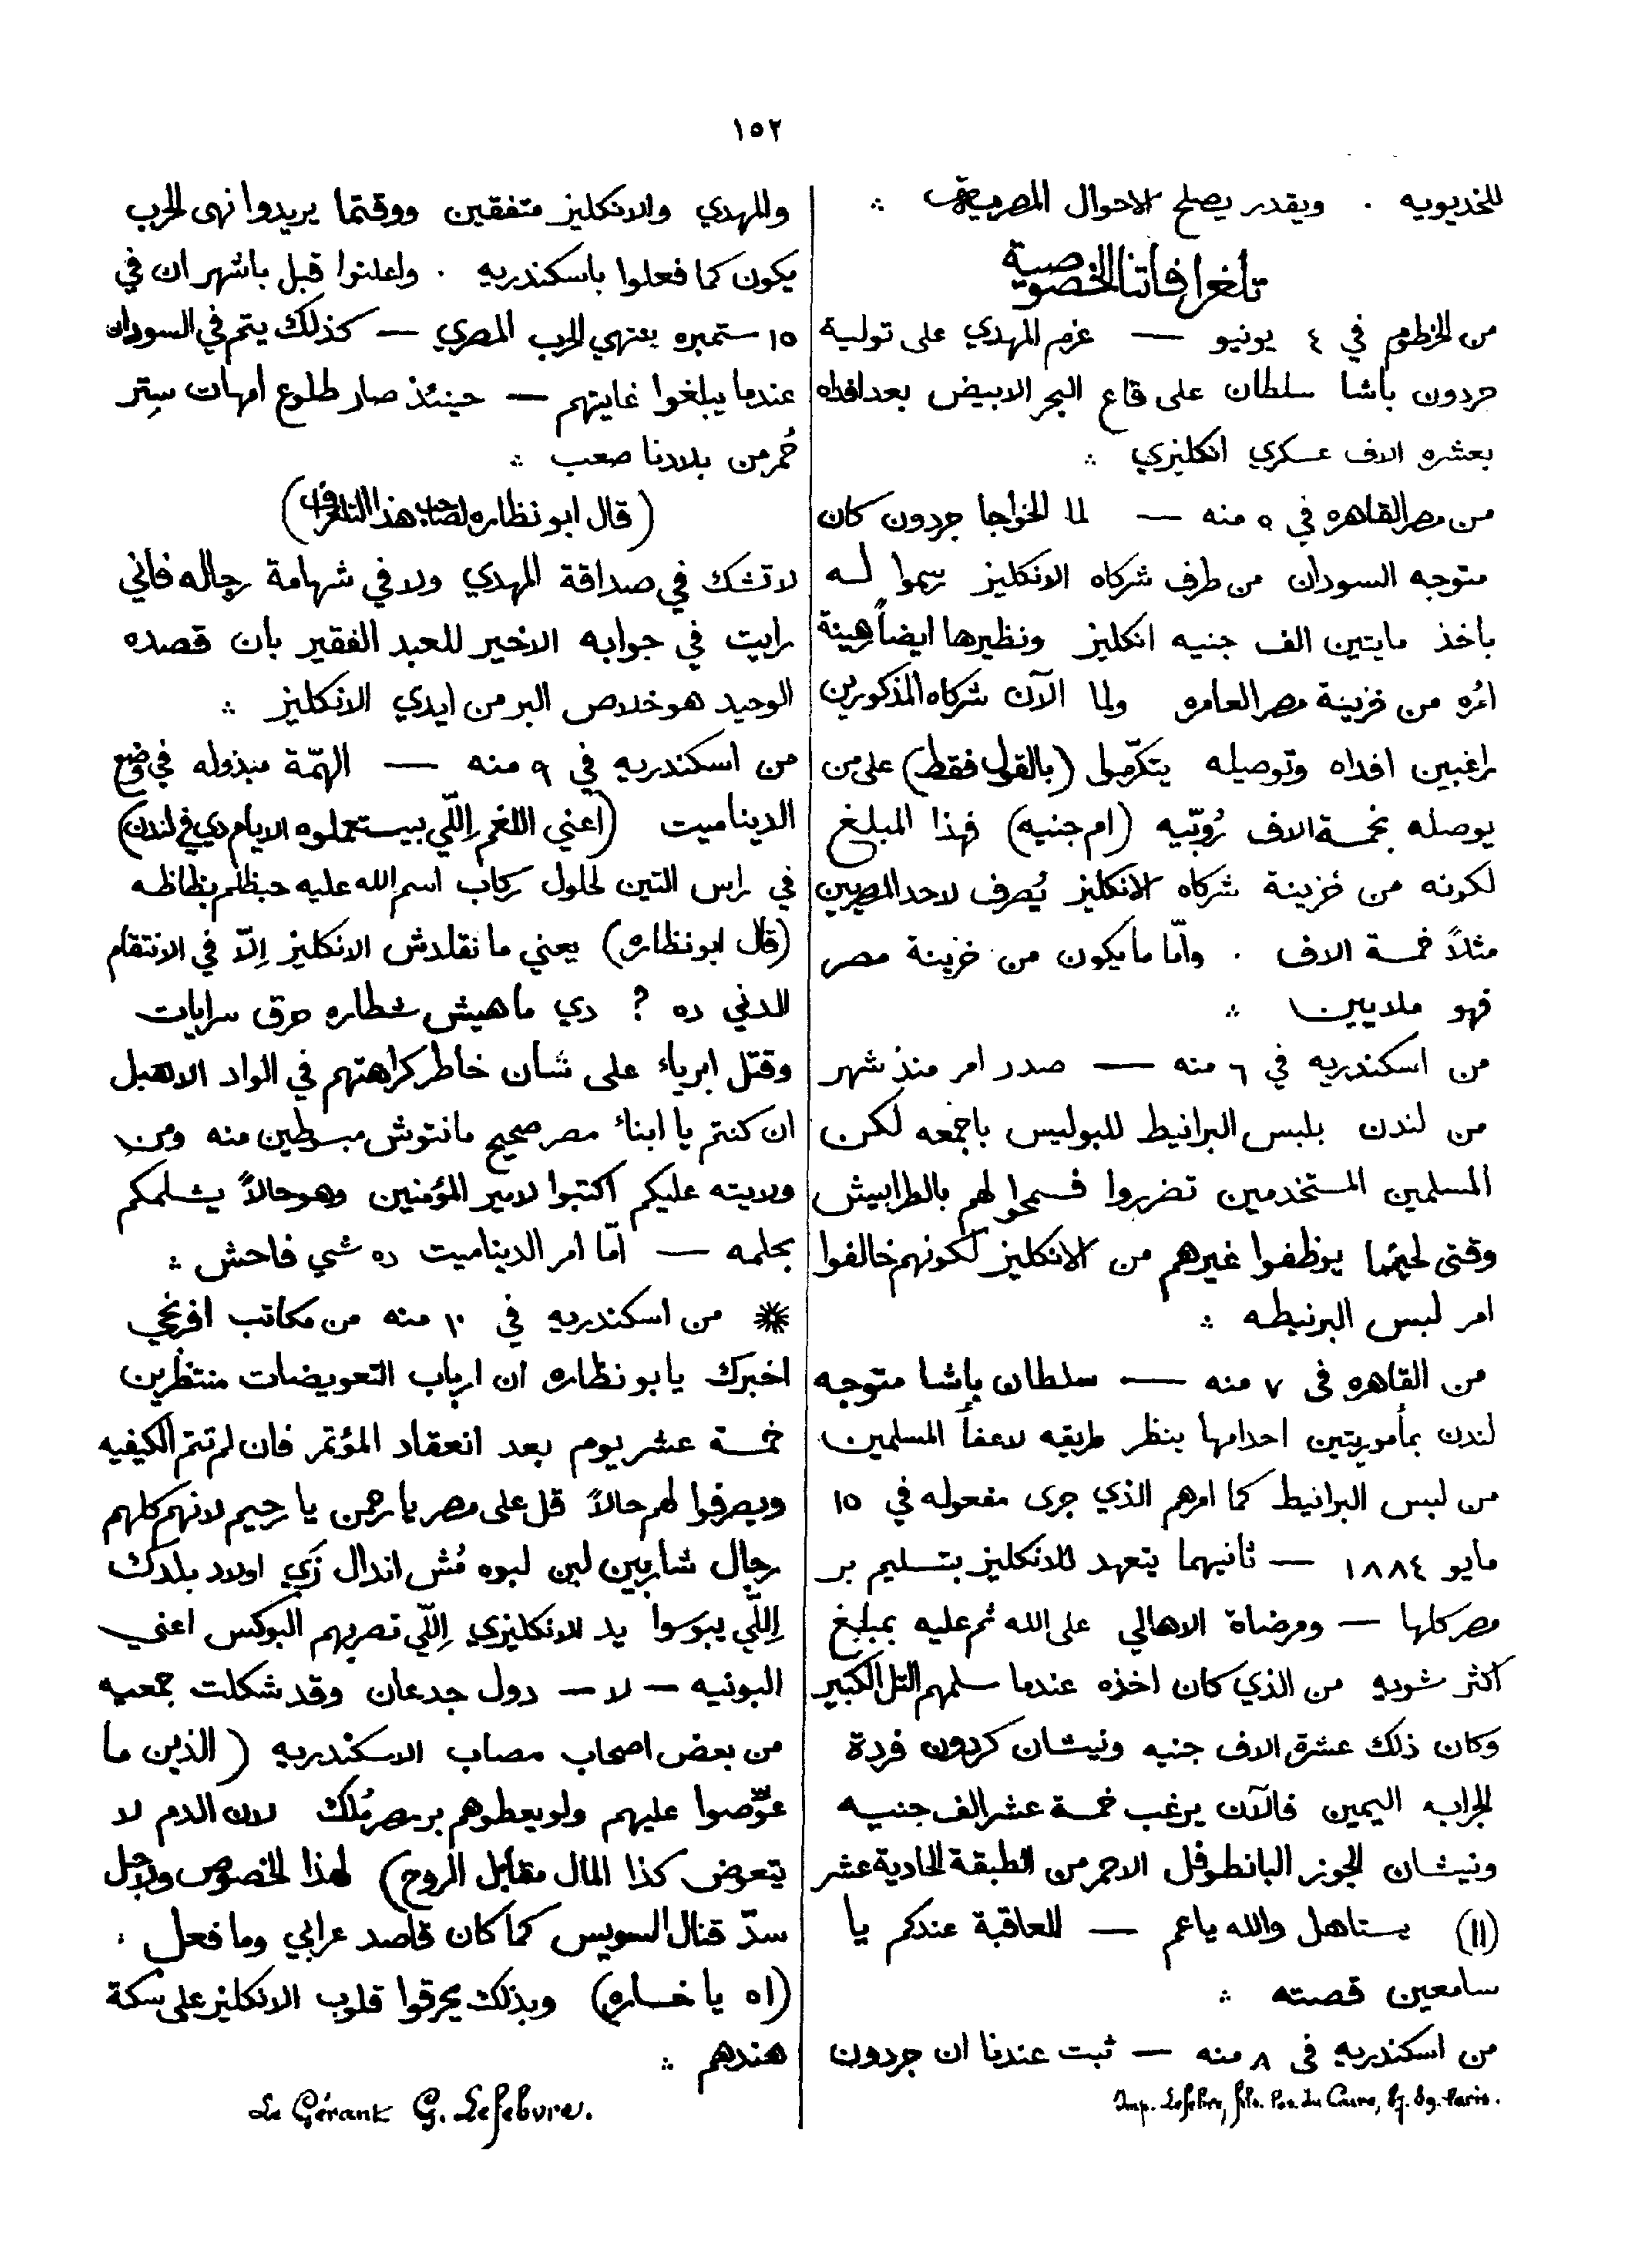 ١٥٢
للخديويه . ويقدر يصلح الاحوال المصريه ∴
تلغرافاتنا الخصوصية
من الخرطوم في ٤ يونيو — عزم المهدي على تولية
جردون باشا سلطان على قاع البحر الابيض بعد افداه
بعشره الاف عسكري انكليزي ∴
من مصر القاهره في ٥ منه — لما الخواجا جردون كان
متوجه السودان من طرف شركاه الانكليز رسموا له
باخذ مايتين الف جنيه انكليز ونظيرها ايضاً رهينة
امره من خزينة مصر العامره ولما الآن شركاه المذكورين
راغبين افداه وتوصيله يتكرّموا (بالقول فقط) على من
يوصله بخمسة الاف رُوبّيه (ام جنيه) فهذا المبلغ
لكونه من خزينة شركاه الانكليز يُصرف لاحد المصريين
مثلاً خمسة الاف . وامّا ما يكون من خزينة مصر
فهو ملايين ∴
من اسكندريه في ٦ منه — صدر امر منذ شهر
من لندن بلبس البرانيط للبوليس باجمعه لكن
المسلمين المستخدمين تضرروا فسمحوا لهم بالطرابيش
وقتى لحينما يوظفوا غيرهم من الانكليز لكونهم خالفوا
امر لبس البرنيطه ∴
من القاهره في ٧ منه — سلطان باشا متوجه
لندن بمأموريتين احدامها ينظر طريقه لاعفأ المسلمين
من لبس البرانيط كما امرهم الذي جرى مفعوله في ١٥
مايو ١٨٨٤ — ثانيهما يتعهد للانكليز بتسليم بر
مصر كلها — ومرضاة الاهالي على الله ثم عليه بمبلغ
اكثر شويه من الذي كان اخذه عندما سلمهم التل الكبير
وكان ذلك عشرة الاف جنيه ونيشان كردون فردة
الجرابه اليمين فالآن يرغب خمسة عشر الف جنيه
ونيشان الجوز البانطوفل الاحمر من الطبقة الحادية عشر
(١١) يستاهل والله ياعم — للعاقبة عندكم يا
سامعين قصته ∴
من اسكندريه في ٨ منه — ثبت عندنا ان جردون
Imp. Lefebvre, fils. Pas. du Caire, 87. 89. Paris.
والمهدي والانكليز متفقين ووقتما يريدوا نهى الحرب
يكون كما فعلوا باسكندريه . واعلنوا قبل باشهر ان في
١٥ ستمبره ينتهي الحرب المصري — كذلك يتم في السودان
عندما يبلغوا غايتهم — حينئذ صار طلوع امهات سِتر
حُمر من بلادنا صعب ∴
(قال ابو نظاره لصاحب هذا التلغراف)
لا تشك في صداقة المهدي ولا في شهامة رجاله فاني
رايت في جوابه الاخير للعبد الفقير بان قصده
الوحيد هو خلاص البر من ايدي الانكليز ∴
من اسكندريه في ٩ منه — الهمّة مبذوله في وضع
الديناميت (اعني اللغم اِللّي بيستعملوه الايام دي في لندن)
في راس التين لحلول ركاب اسم الله عليه حبظلم بظاظه
(قال ابو نظاره) يعني ما نقلدش الانكليز اِلاّ في الانتقام
الدني ده ? دي ماهيش شطاره حرق سرايات
وقتل ابرياء على شان خاطر كراهتهم في الواد الاهبل
ان كنتم يا ابناء مصر صحيح مانتوش مبسوطين منه ومن
ولايته عليكم اكتبوا لامير المؤمنين وهو حالاً يشلمكم
بحلمه — امّا امر الديناميت ده شي فاحش ∴
❋ من اسكندريه في ١٠ منه من مكاتب افرنجي
اخبرك يا بو نظاره ان ارباب التعويضات منتظرين
خمسة عشر يوم بعد انعقاد المؤتمر فان لم تتم الكيفيه
ويصرفوا لهم حالاً قل على مصر يا رحمن يا رحيم لانهم كلهم
رجال شاربين لبن لبوه مُش اندال زَي اولاد بلدك
اِللّي يبوسوا يد الانكليزي اِللّي تضربهم البوكس اعني
البونيه — لا — دول جدعان وقد شكلت جمعيه
من بعض اصحاب مصاب الاسكندريه (الذين ما
عوّضوا عليهم ولو يعطوهم بر مصر مُلك لان الدم لا
يتعوض كذا المال مقابل الروح) لهذا الخصوص ولاجل
سدّ قنال السويس كما كان قاصد عرابي وما فعل .
(اه يا خساره) وبذلك يحرقوا قلوب الانكليز على سكة
هندهم ∴
Le Gérant G. Lefebvre.